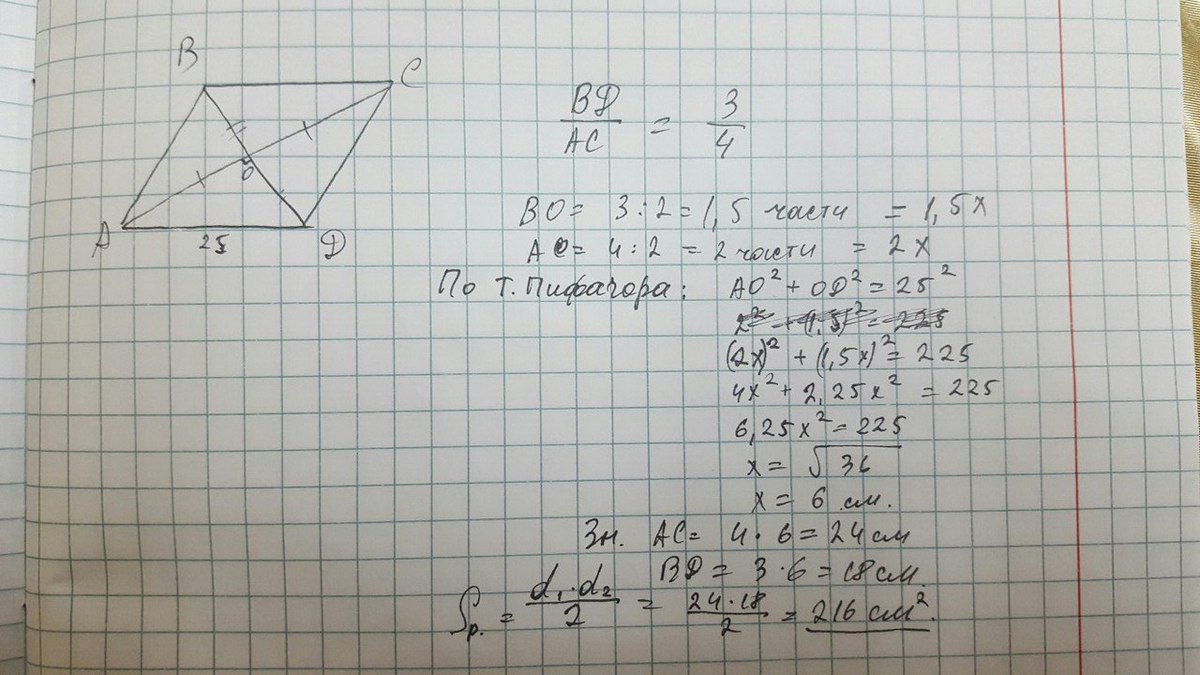 B
C
O
A
25
D
BD/AC = 3/4
BO = 3:2 = 1,5 части = 1,5x
AO = 4:2 = 2 части = 2x
По т. Пифагора: AO² + OD² = 25²
2² + (1,5)² = 225
(2x)² + (1,5x)² = 225
4x² + 2,25x² = 225
6,25x² = 225
x = √36
x = 6 см.
Зн. AC = 4·6 = 24 см
BD = 3·6 = 18 см.
Sр. = d₁·d₂/2 = 24·18/2 = 216 см².